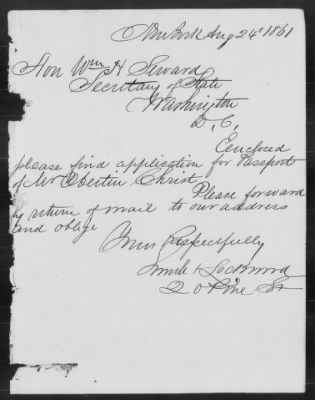 New York Aug 24th 1861
Hon Wm H Seward
Secretary of State
Washington
D, C,
Enclosed
please find application for Passport
of Mr Obertin Christ
Please forward
by return of mail to our address
and oblige
Yours Respectfully
& Lockwood
20 Pine St